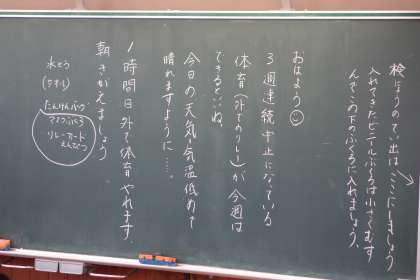 検にょうのてい出はここにしましょう
入れてきたビニールぶくろは小さくむす
んでこの下のふくろに入れましょう。
おはよう
3週連続中止になっている
体育(外でのリレー)が今週は
できるといいね。
今日の天気・気温低めで
晴れますように……。
1時間目外で体育やれます。
朝きがえましょう
水とう
(タオル)
たんけんバッグ
マスクぶくろ
リレーカード
えんぴつ